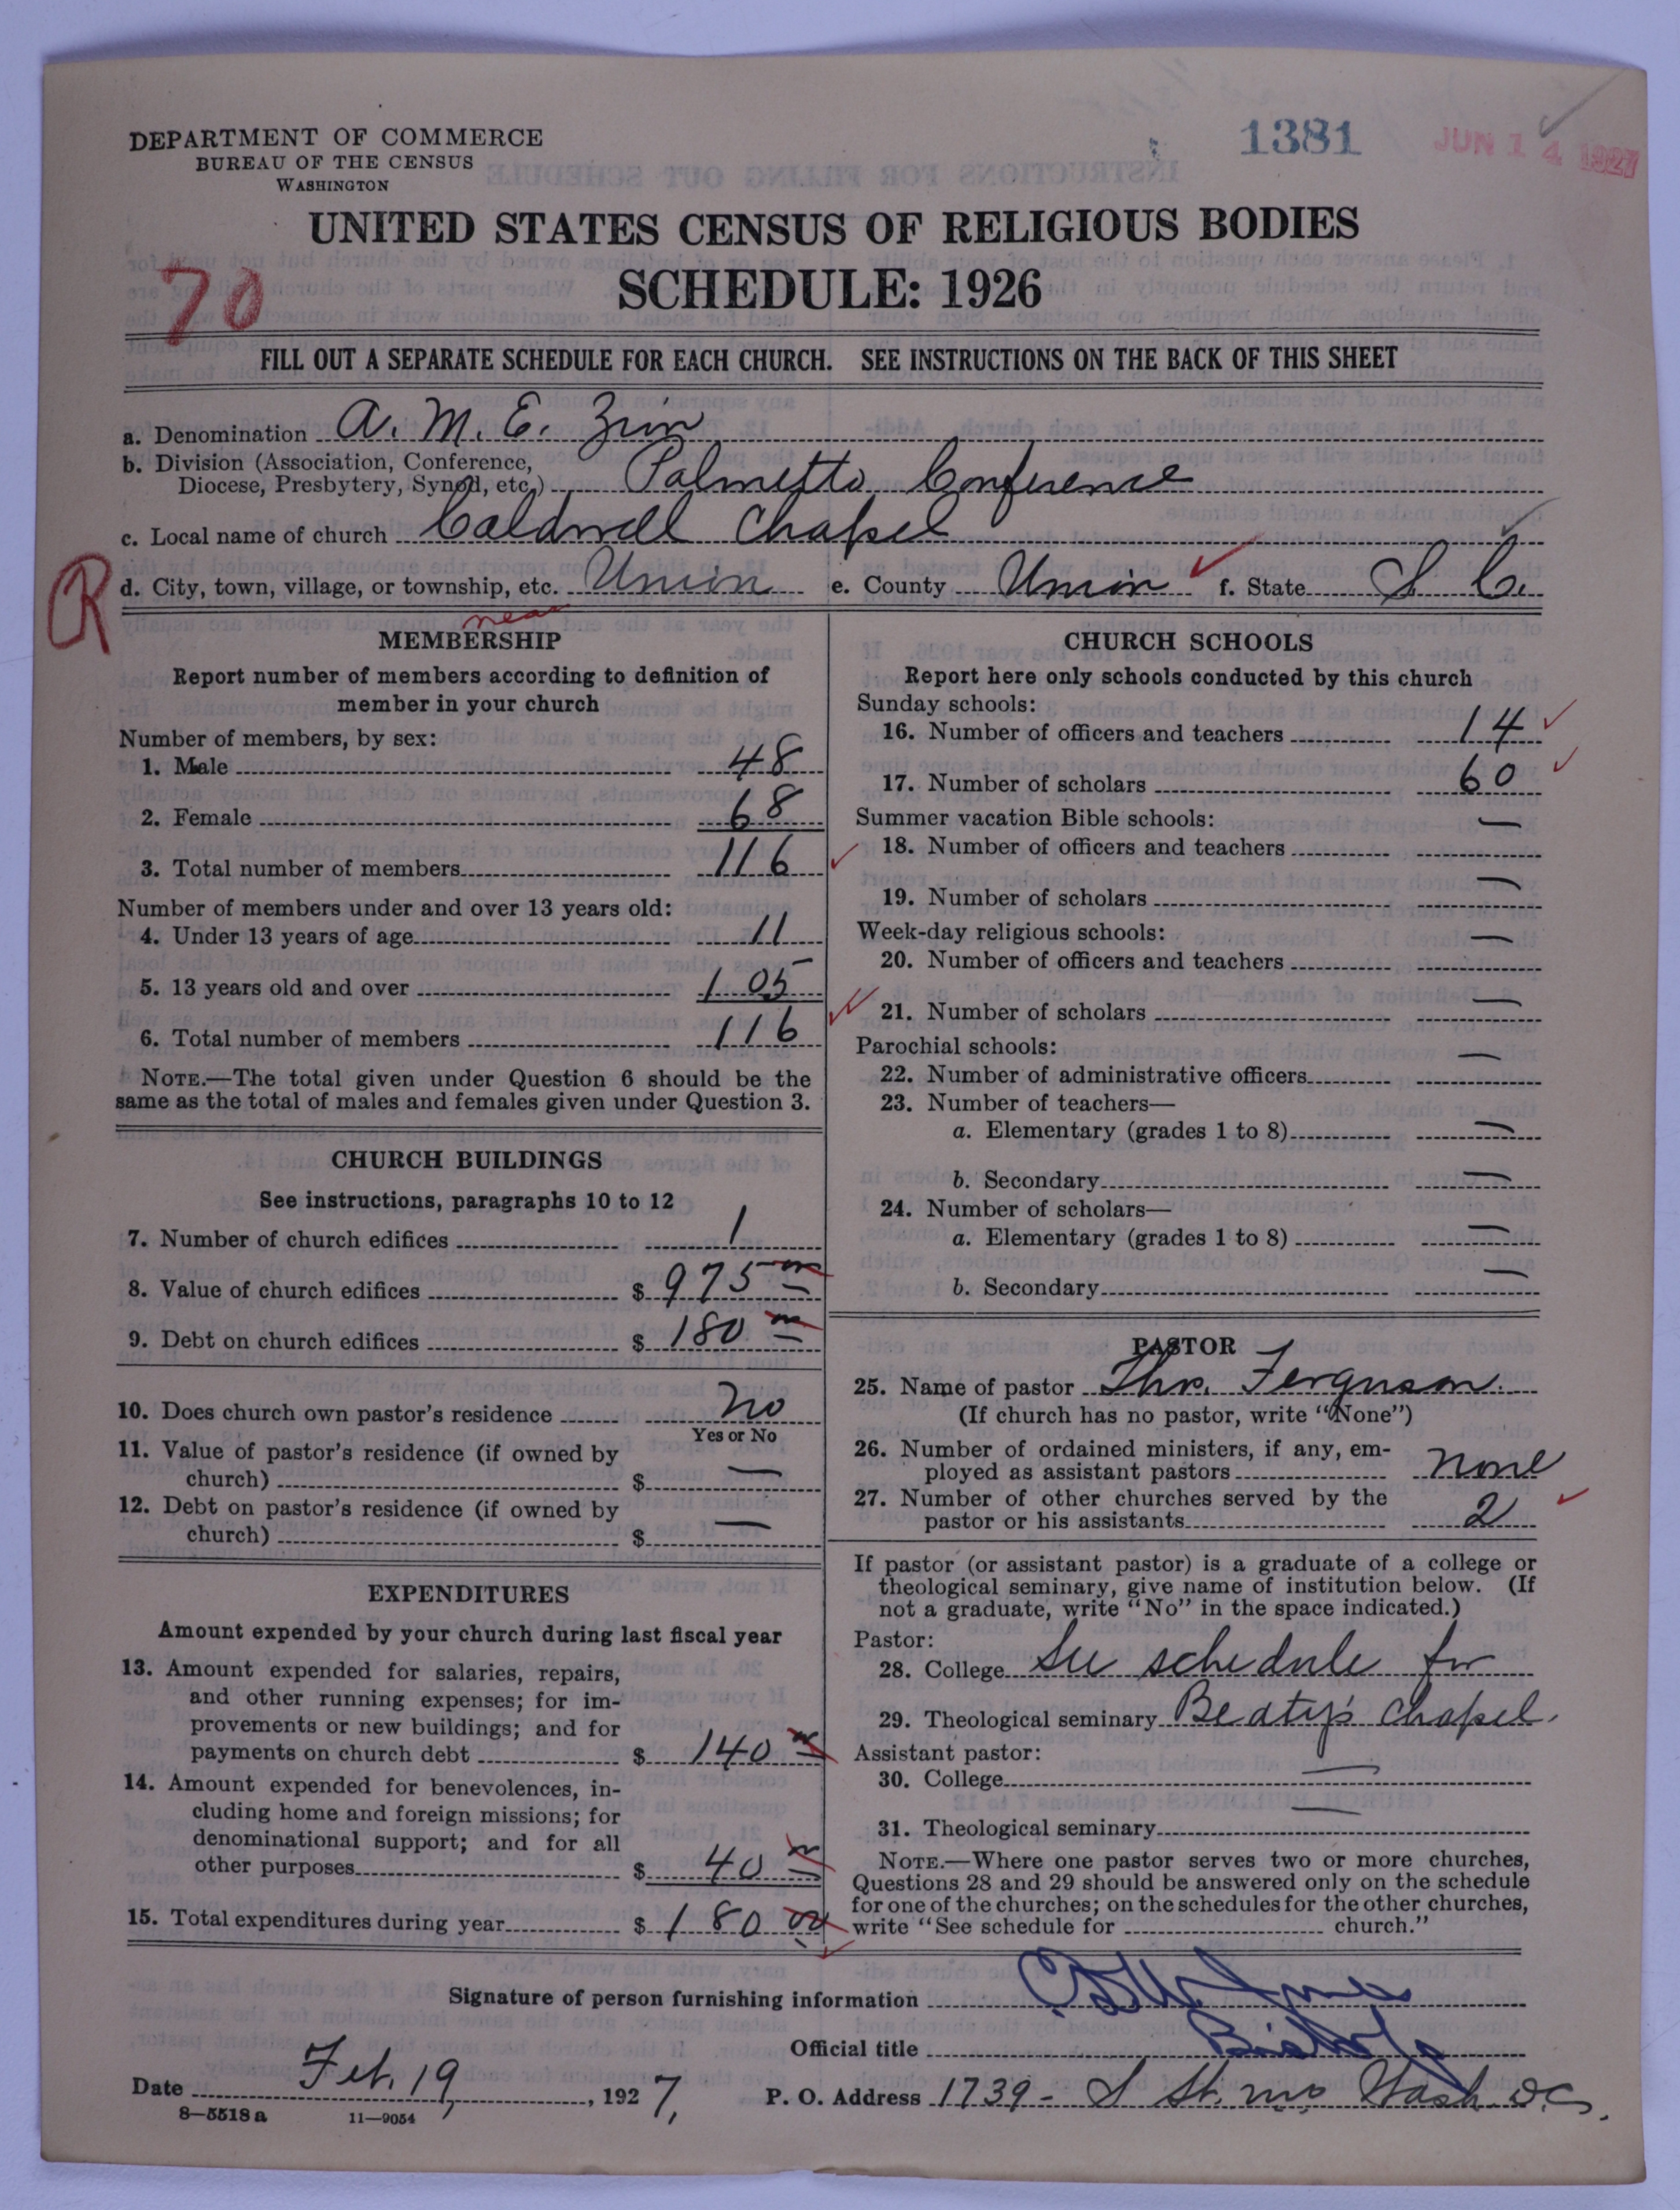 DEPARTMENT OF COMMERCE
BUREAU OF THE CENSUS
WASHINGTON
1381
JUN 14 1927
UNITED STATES CENSUS OF RELIGIOUS BODIES
SCHEDULE: 1926
70
FILL OUT A SEPARATE SCHEDULE FOR EACH CHURCH. SEE INSTRUCTIONS ON THE BACK OF THIS SHEET
a. Denomination A. M. E. Zion
b. Division (Association, Conference, Diocese, Presbytery, Synod, etc.) Palmetto Conference
c. Local name of church Caldwell Chapel
R
d. City, town, village, or township, etc. Union e. County Union f. State S. C.
near
MEMBERSHIP
Report number of members according to definition of
member in your church
Number of members, by sex:
1. Male 48
2. Female 68
3. Total number of members 116
Number of members under and over 13 years old:
4. Under 13 years of age 11
5. 13 years old and over 105
6. Total number of members 116
NOTE.—The total given under Question 6 should be the
same as the total of males and females given under Question 3.
CHURCH BUILDINGS
See instructions, paragraphs 10 to 12
7. Number of church edifices 1
8. Value of church edifices $ 975 00
9. Debt on church edifices $ 180 00
10. Does church own pastor's residence No
Yes or No
11. Value of pastor's residence (if owned by
church) $ —
12. Debt on pastor's residence (if owned by
church) $ —
EXPENDITURES
Amount expended by your church during last fiscal year
13. Amount expended for salaries, repairs,
and other running expenses; for im-
provements or new buildings; and for
payments on church debt $ 140 00
14. Amount expended for benevolences, in-
cluding home and foreign missions; for
denominational support; and for all
other purposes $ 40 00
15. Total expenditures during year $ 180 00
CHURCH SCHOOLS
Report here only schools conducted by this church
Sunday schools:
16. Number of officers and teachers 14
17. Number of scholars 60
Summer vacation Bible schools:
18. Number of officers and teachers —
19. Number of scholars —
Week-day religious schools:
20. Number of officers and teachers —
21. Number of scholars —
Parochial schools:
22. Number of administrative officers —
23. Number of teachers—
a. Elementary (grades 1 to 8) —
b. Secondary —
24. Number of scholars—
a. Elementary (grades 1 to 8) —
b. Secondary —
PASTOR
25. Name of pastor Thos. Ferguson.
(If church has no pastor, write "None")
26. Number of ordained ministers, if any, em-
ployed as assistant pastors none
27. Number of other churches served by the
pastor or his assistants 2
If pastor (or assistant pastor) is a graduate of a college or
theological seminary, give name of institution below. (If
not a graduate, write "No" in the space indicated.)
Pastor:
28. College See schedule for
29. Theological seminary Beaty's Chapel.
Assistant pastor:
30. College —
31. Theological seminary —
NOTE.—Where one pastor serves two or more churches,
Questions 28 and 29 should be answered only on the schedule
for one of the churches; on the schedules for the other churches,
write "See schedule for church."
Signature of person furnishing information
Official title Bishop
Date Feb. 19, 1927, P. O. Address 1739 - S St. n.w. Wash. D.C.
8—5518 a 11—9054